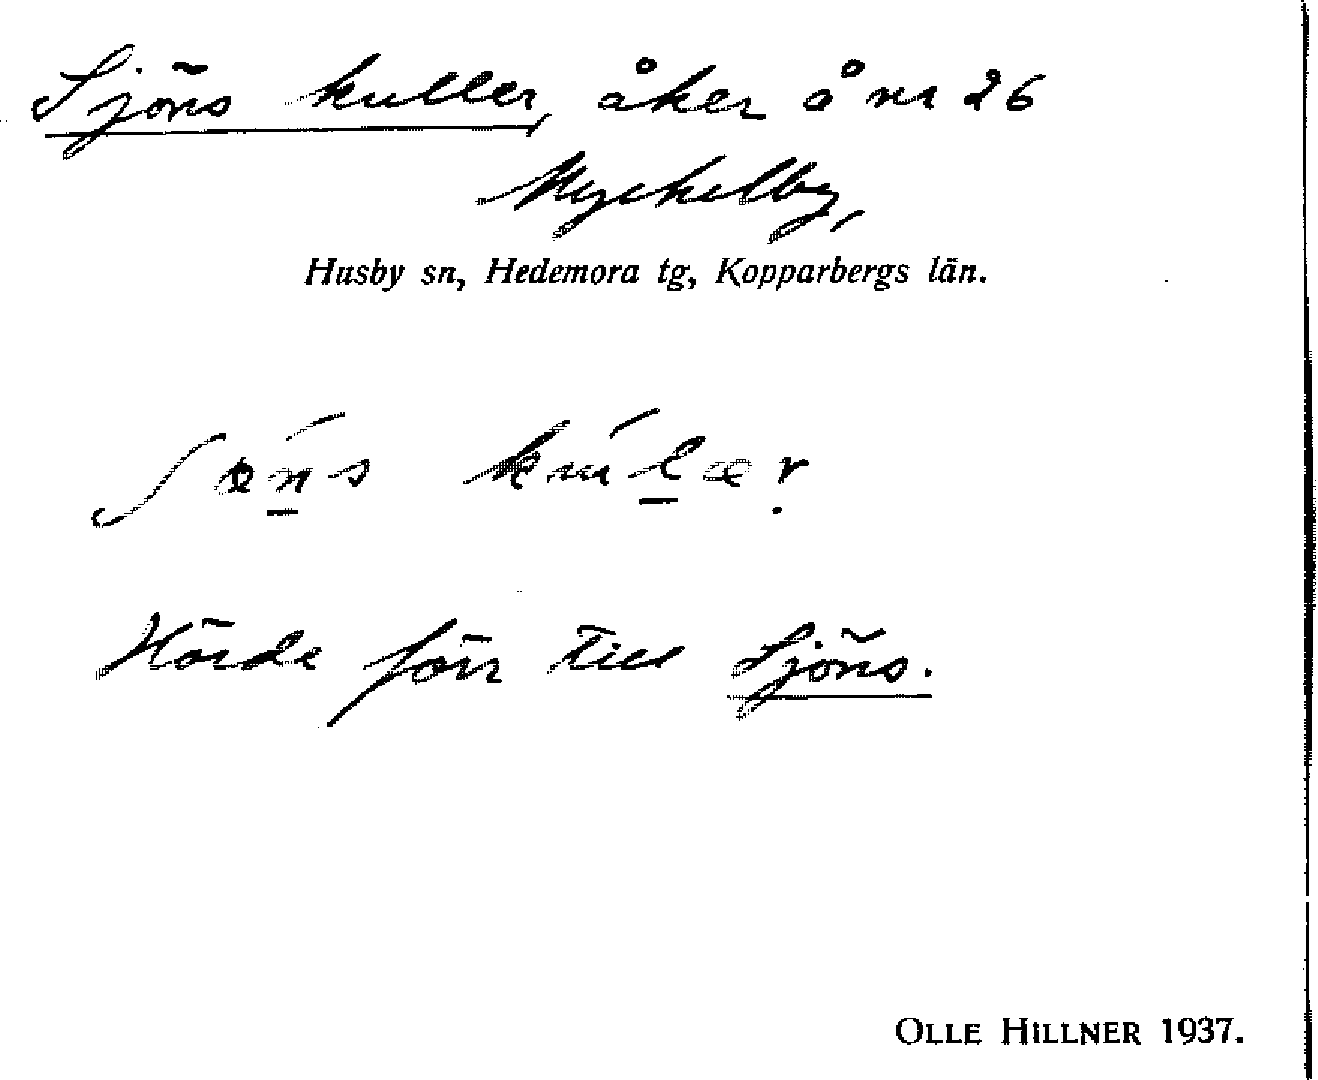 Sjöns kuller, åker å nr 26
Myckelby,
Husby sn, Hedemora tg, Kopparbergs län.
Hörde förr till Sjöns.
OLLE HILLNER 1937.